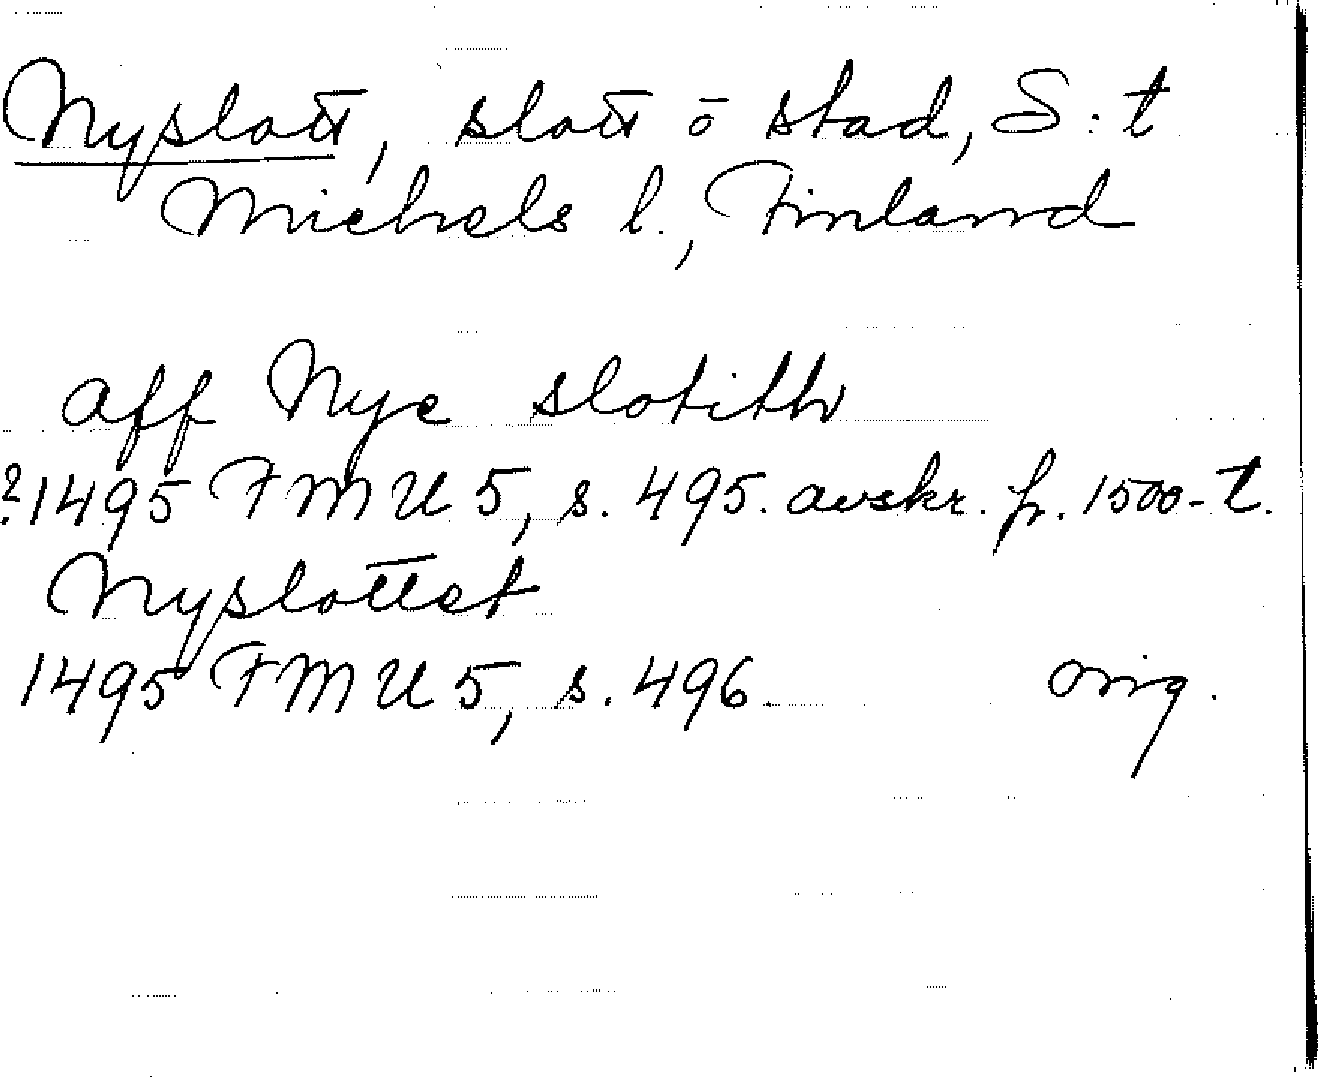 Nyslott, slott ō stad, S:t
Michels l., Finland
aff Nye slotith
?1495 FMU 5, s. 495. avskr. fr. 1500-t.
Nyslottet
1495 FMU 5, s. 496 orig.